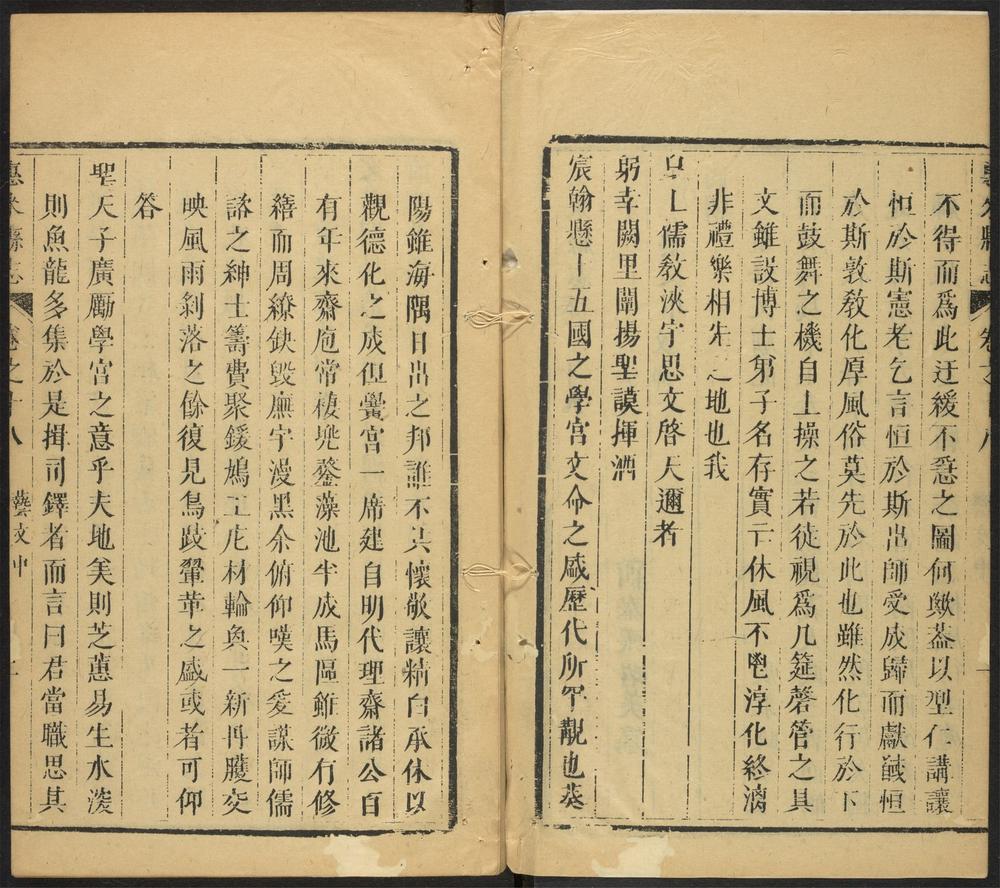 惠來縣志 卷之十八
不得而爲此迂緩不急之圖何歟葢以型仁講讓
恒於斯憲老乞言恒於斯出師受成歸而獻馘恒
於斯敦敎化厚風俗莫先於此也雖然化行於下
而鼓舞之機自上操之若徒視爲几筵磬管之具
文雖設博士弟子名存實亡休風不鬯淳化終漓
非禮樂相先之地也我
皇上儒敎浹宇思文啓天邇者
躬幸闕里闡揚聖謨揮洒
宸翰懸十五國之學宮文命之盛歷代所罕覯也葵
陽雖海隅日出之邦誰不共懷敬讓精白承休以
觀德化之成但黌宮一席建自明代理齋諸公百
有年來齋庖常棲㙟鏊藻池半成馬區雖微有修
繕而周繚缺毁廡宇漫黑余俯仰嘆之爰謀師儒
諮之紳士籌費聚鍰鳩工庀材輪奐一新丹雘交
映風雨剝落之餘復見鳥跂翬革之盛或者可仰
答
聖天子廣勵學宮之意乎夫地美則芝蕙易生水深
則魚龍多集於是揖司鐸者而言曰君當職思其
惠來縣志 卷之十八 藝文中